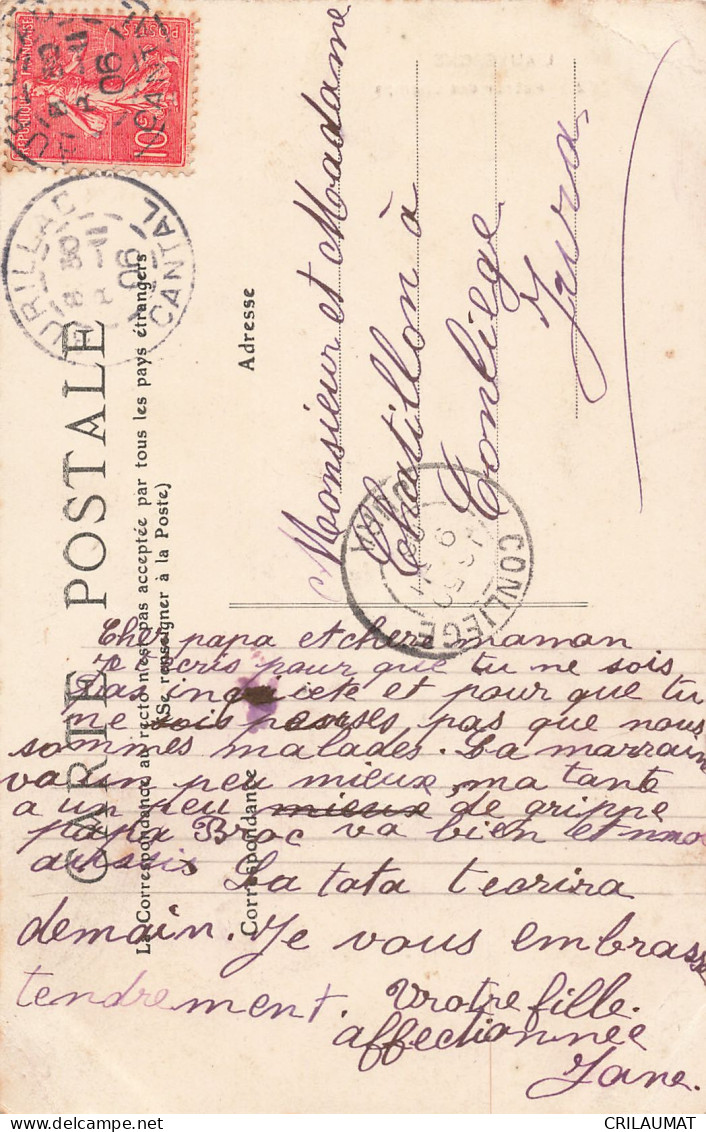 RÉPUBLIQUE FRANÇAISE
POSTES
10c
CANTAL
06
AURILLAC
CANTAL
06
CARTE POSTALE
La Correspondance au recto n'est pas acceptée par tous les pays étrangers
(Se renseigner à la Poste)
Correspondance
Adresse
Monsieur et Madame
Chatillon à
Conliège
Jura
CONLIEGE
JURA
Cher papa et chere maman
Je ecris pour que tu ne sois
pas inquiete et pour que tu
ne sois penses pas que nous
sommes malades. La marraine
va un peu mieux, ma tante
a un peu mieux de grippe
papa Broc va bien et moi
aussi La tata t'ecrira
demain. Je vous embrasse
tendrement. Vrotre fille
affectionnée
Jane.
CRILAUMAT